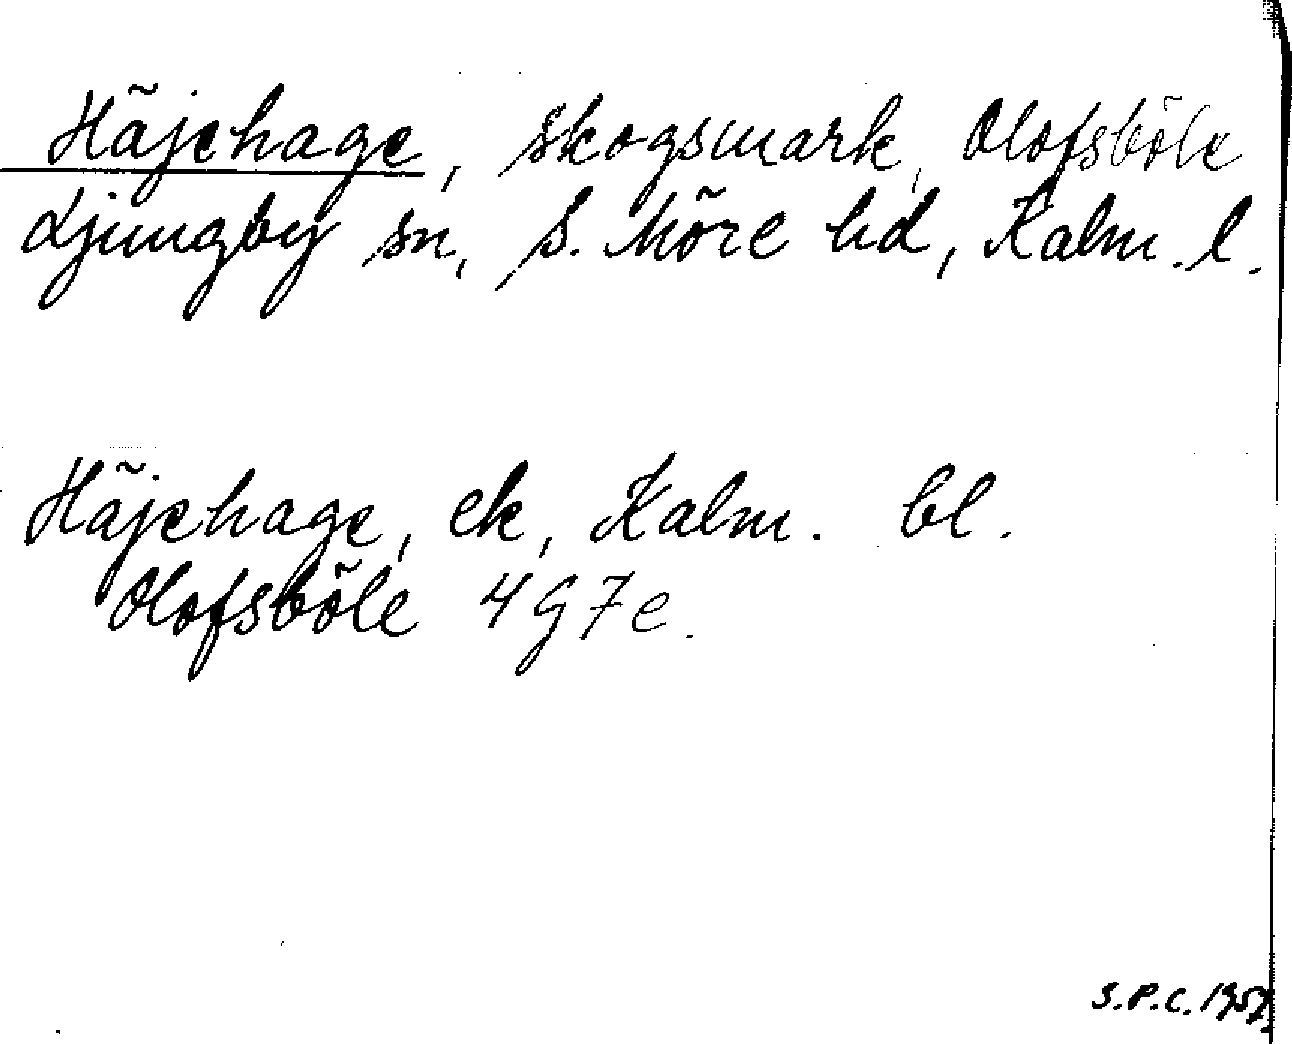 Häjehage, skogsmark, Olofsböle
Ljungby sn, S. Möre hd, Kalm. l.
Häjehage, ek, Kalm. bl.
Olofsböle 4G7e.
S.P.C. 195